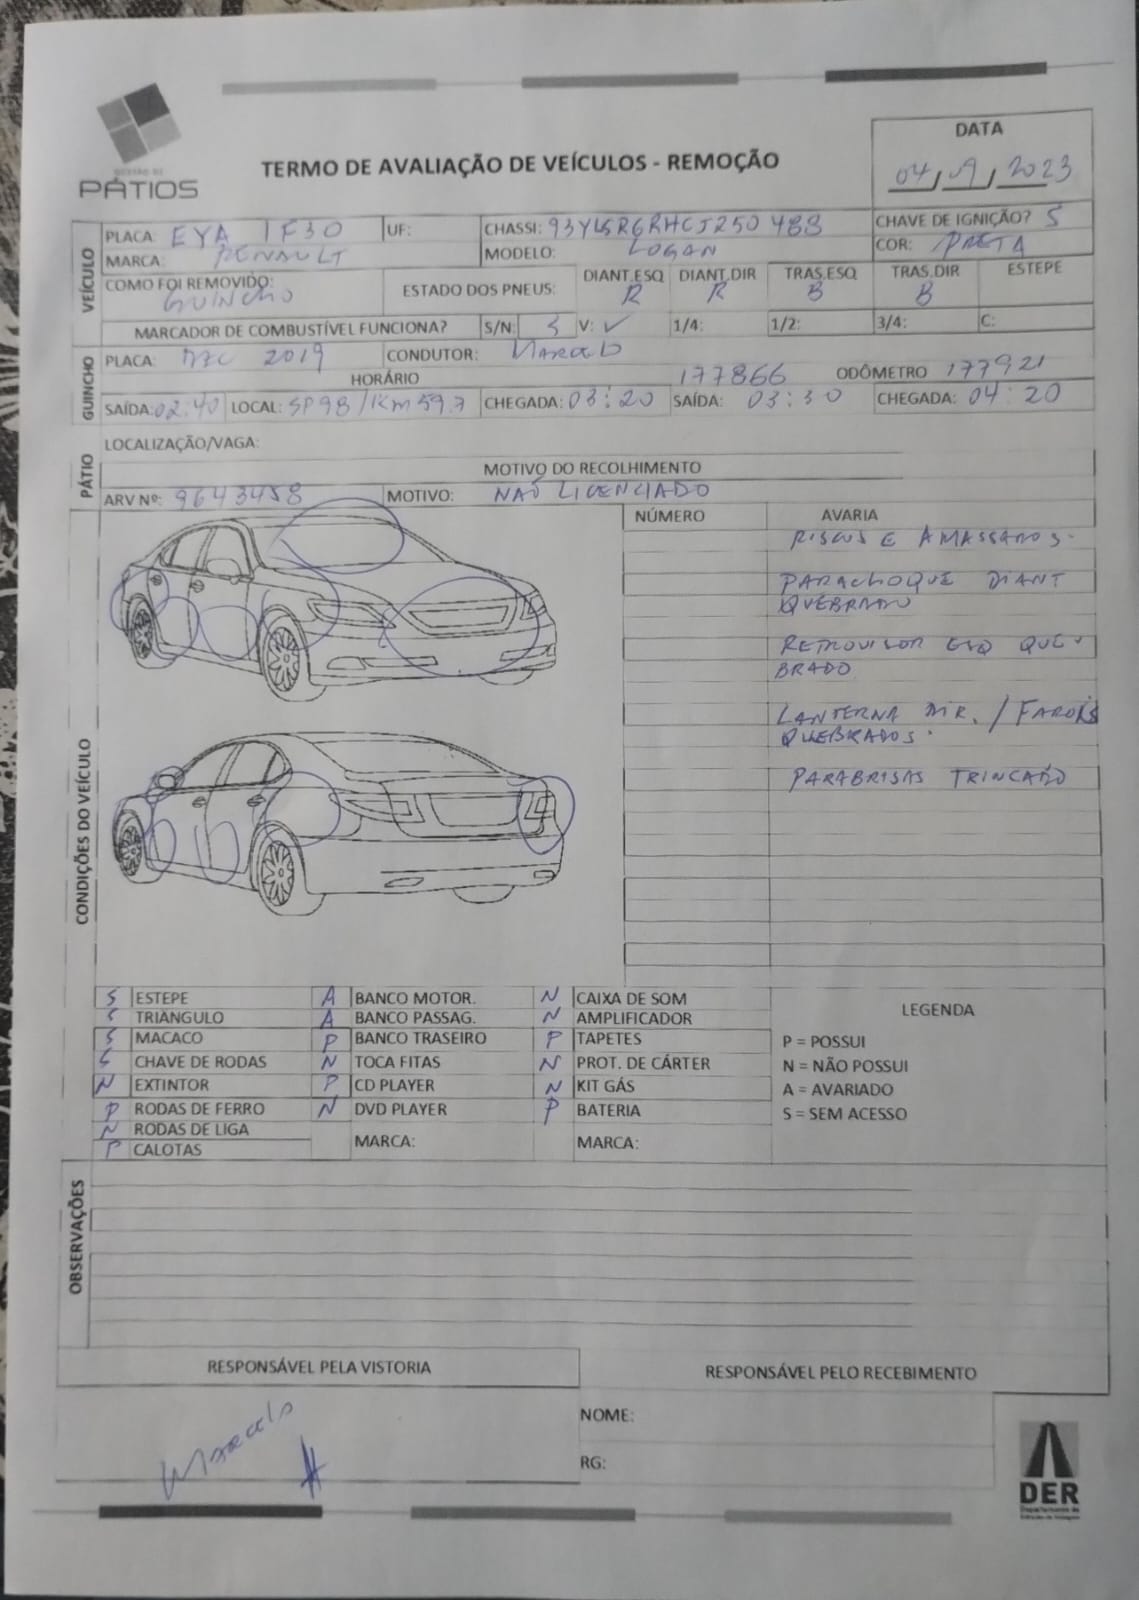 GESTÃO DE
PÁTIOS
TERMO DE AVALIAÇÃO DE VEÍCULOS - REMOÇÃO
DATA
04/09/2023
VEÍCULO
PLACA: EYA 1F30 UF: CHASSI: CHAVE DE IGNIÇÃO? S
MARCA: RENAULT MODELO: LOGAN COR: PRETA
COMO FOI REMOVIDO: GUINCHO ESTADO DOS PNEUS: DIANT.ESQ R DIANT.DIR R TRAS.ESQ B TRAS.DIR B ESTEPE
MARCADOR DE COMBUSTÍVEL FUNCIONA? S/N: S V: ✓ 1/4: 1/2: 3/4: C:
GUINCHO
PLACA: 2019 CONDUTOR: Marcelo
HORÁRIO 177866 ODÔMETRO 177921
SAÍDA: 02:40 LOCAL: SP98/KM59.7 CHEGADA: 03:20 SAÍDA: 03:30 CHEGADA: 04:20
PÁTIO
LOCALIZAÇÃO/VAGA:
MOTIVO DO RECOLHIMENTO
ARV Nº: 9643458 MOTIVO: NÃO LICENCIADO
CONDIÇÕES DO VEÍCULO
NÚMERO AVARIA
RISCOS E AMASSADOS.
PARACHOQUE DIANT
QUEBRADO
RETROVISOR ESQ QUE-
BRADO
LANTERNA DIR. / FAROIS
QUEBRADOS.
PARABRISAS TRINCADO
S ESTEPE A BANCO MOTOR. N CAIXA DE SOM LEGENDA
S TRIÂNGULO A BANCO PASSAG. N AMPLIFICADOR
S MACACO P BANCO TRASEIRO P TAPETES P = POSSUI
S CHAVE DE RODAS N TOCA FITAS N PROT. DE CÁRTER N = NÃO POSSUI
N EXTINTOR P CD PLAYER N KIT GÁS A = AVARIADO
P RODAS DE FERRO N DVD PLAYER P BATERIA S = SEM ACESSO
N RODAS DE LIGA MARCA: MARCA:
P CALOTAS
OBSERVAÇÕES
RESPONSÁVEL PELA VISTORIA RESPONSÁVEL PELO RECEBIMENTO
Marcelo
NOME:
RG:
DER